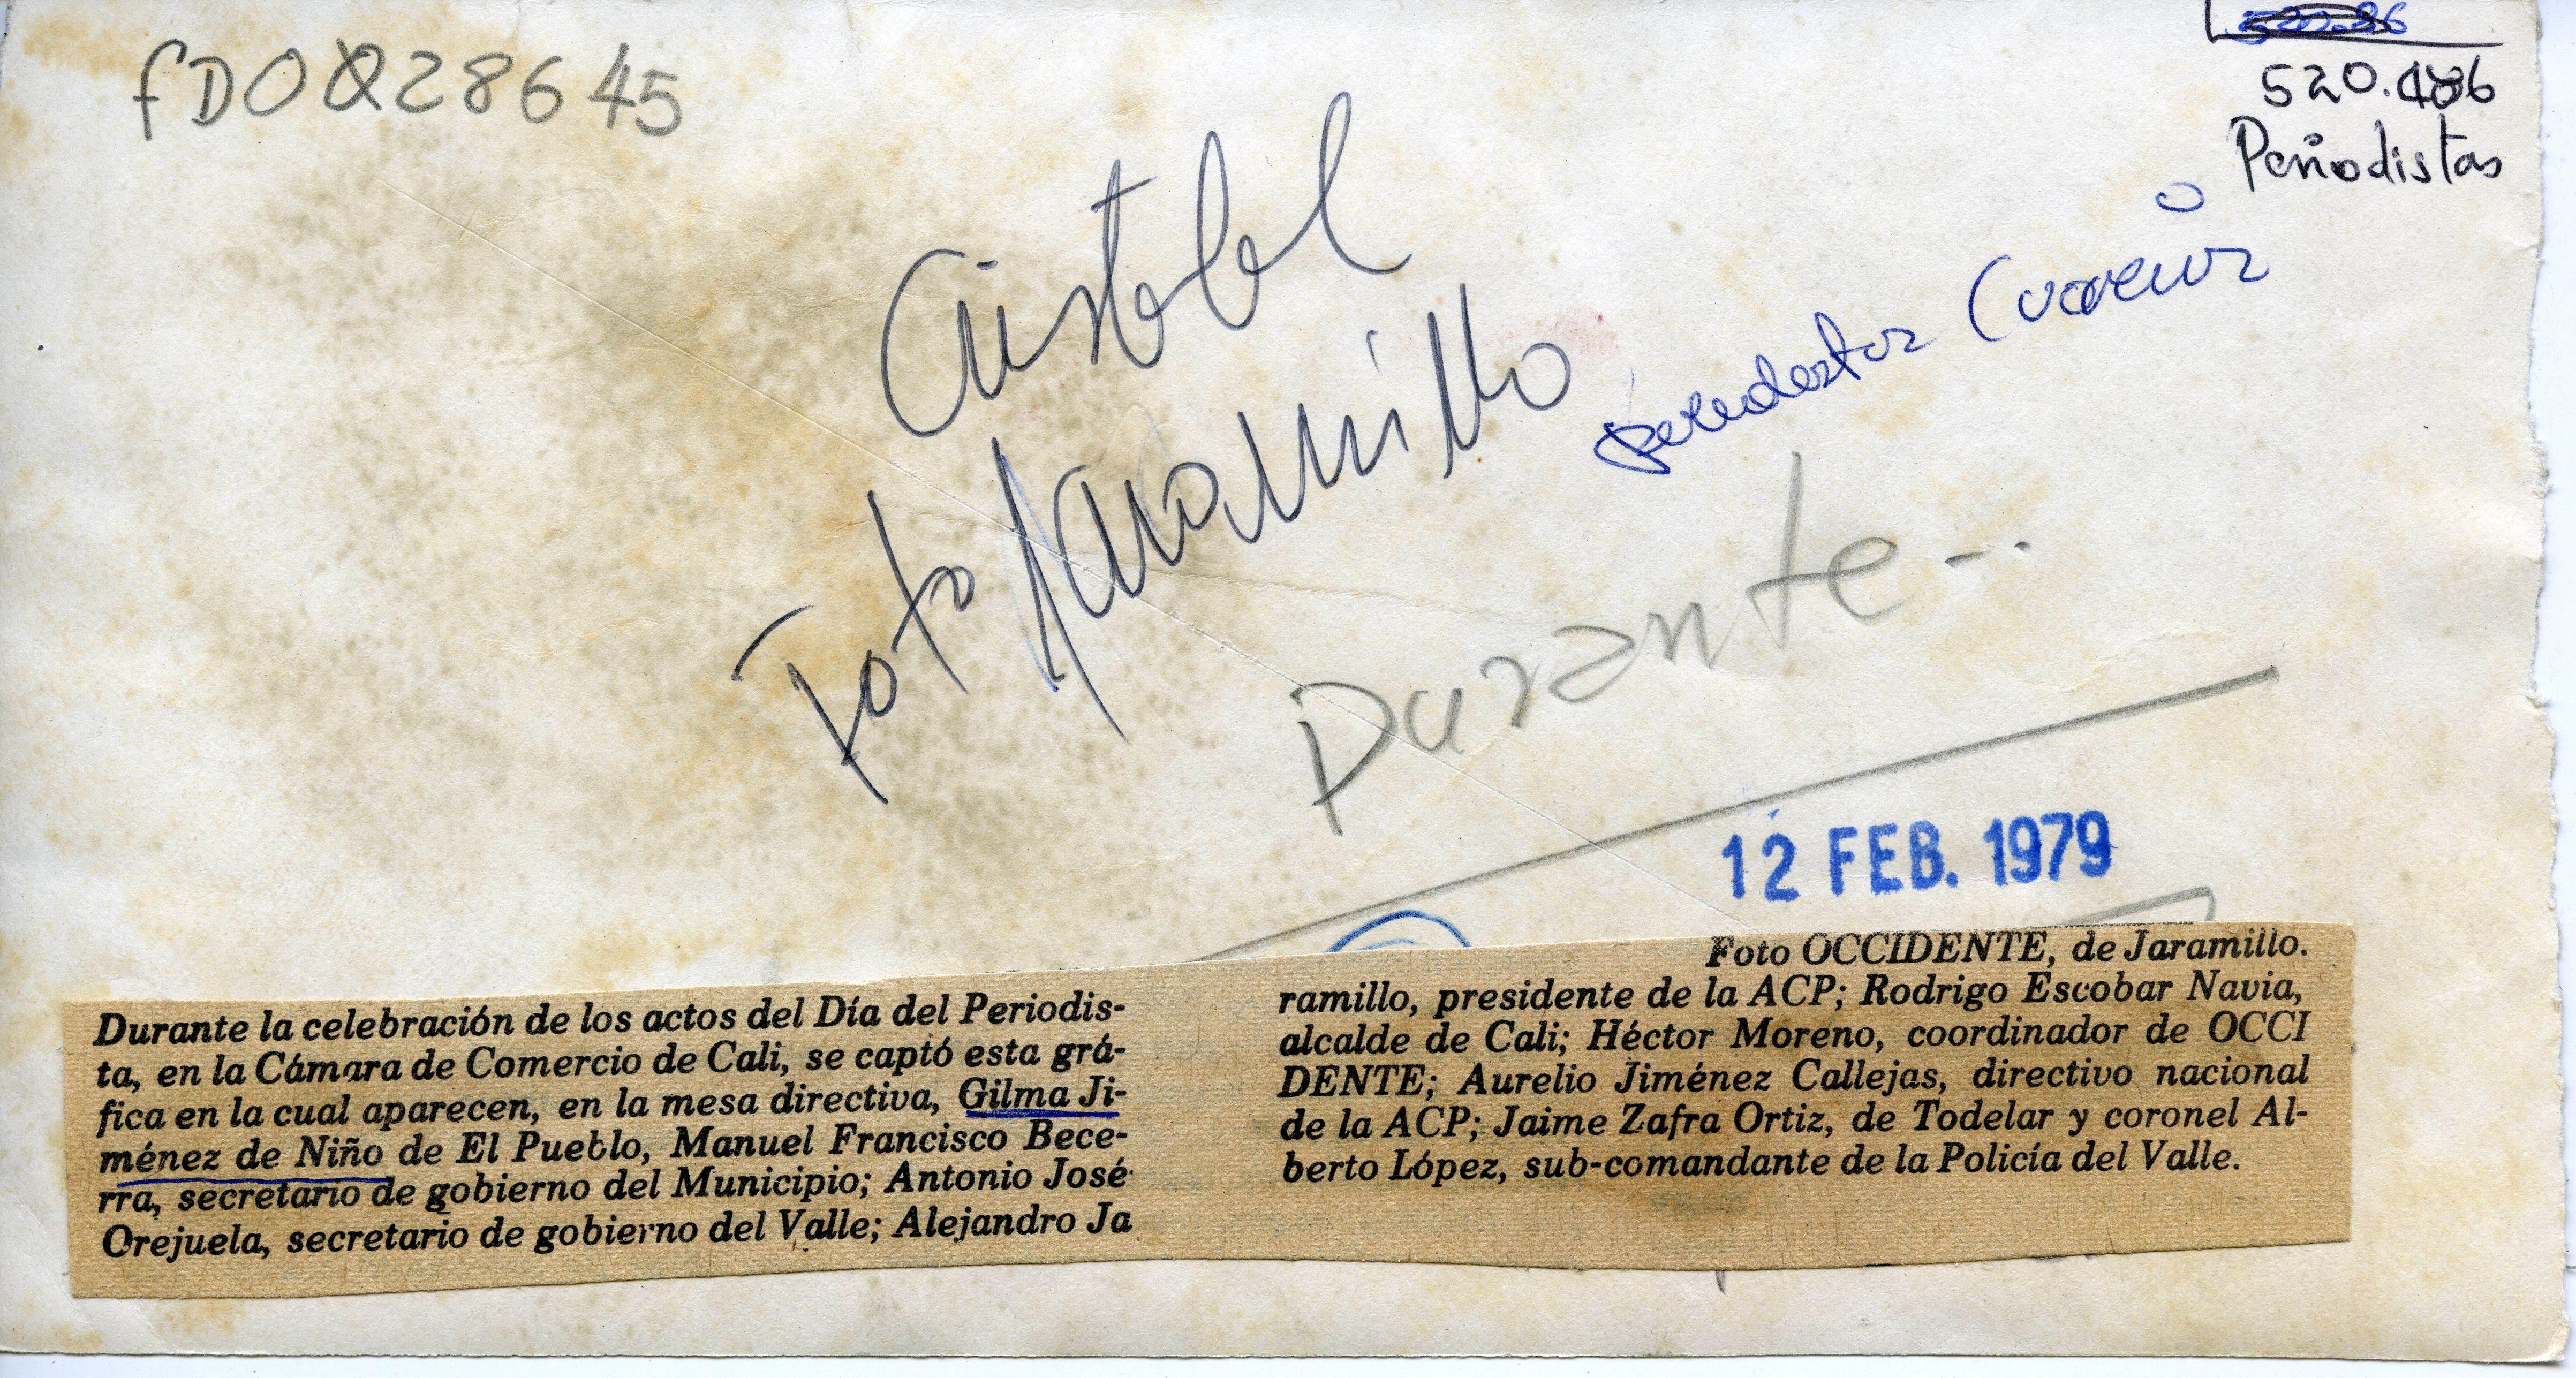 fD0028645
520.486
Periodistas
Cristobal
Foto Jaramillo
Durante...
12 FEB. 1979
Foto OCCIDENTE, de Jaramillo.
Durante la celebración de los actos del Día del Periodis-
ta, en la Cámara de Comercio de Cali, se captó esta grá-
fica en la cual aparecen, en la mesa directiva, Gilma Ji-
ménez de Niño de El Pueblo, Manuel Francisco Bece-
rra, secretario de gobierno del Municipio; Antonio José
Orejuela, secretario de gobierno del Valle; Alejandro Ja
ramillo, presidente de la ACP; Rodrigo Escobar Navia,
alcalde de Cali; Héctor Moreno, coordinador de OCCI
DENTE; Aurelio Jiménez Callejas, directivo nacional
de la ACP; Jaime Zafra Ortiz, de Todelar y coronel Al-
berto López, sub-comandante de la Policía del Valle.